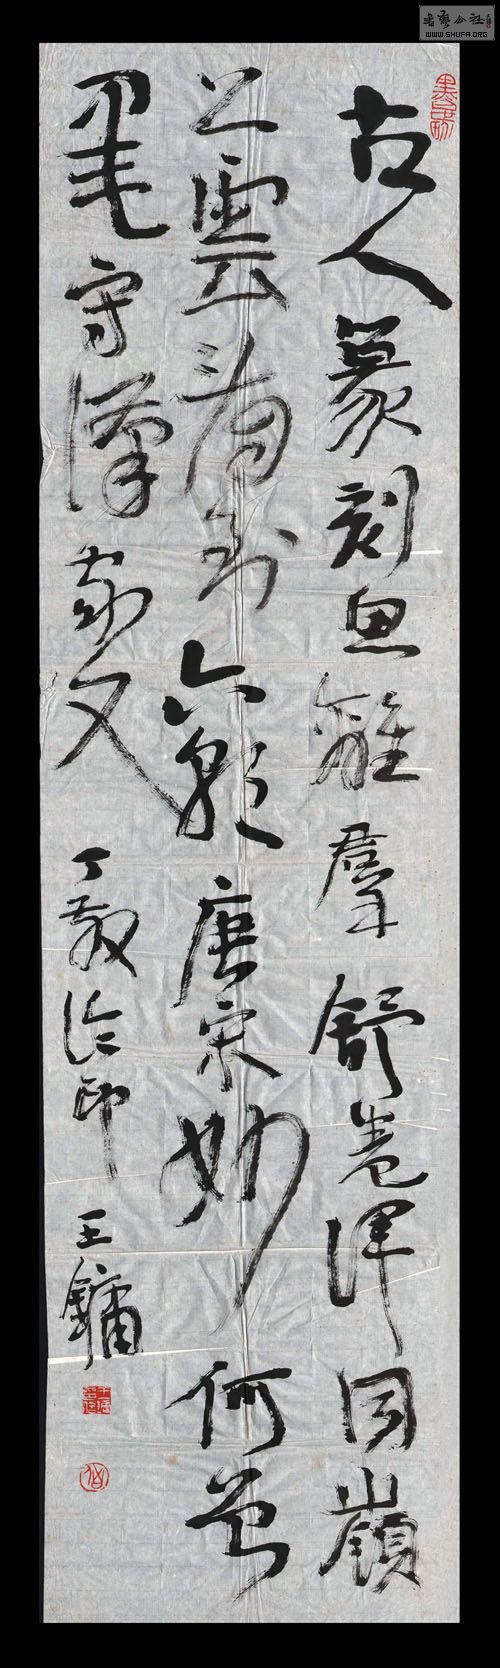 古人篆刻思離群舒卷渾同嶺
上雲看到六朝唐宋妙何曾
墨守漢家文 丁敬論印 王鏞
書藝公社
WWW.SHUFA.ORG